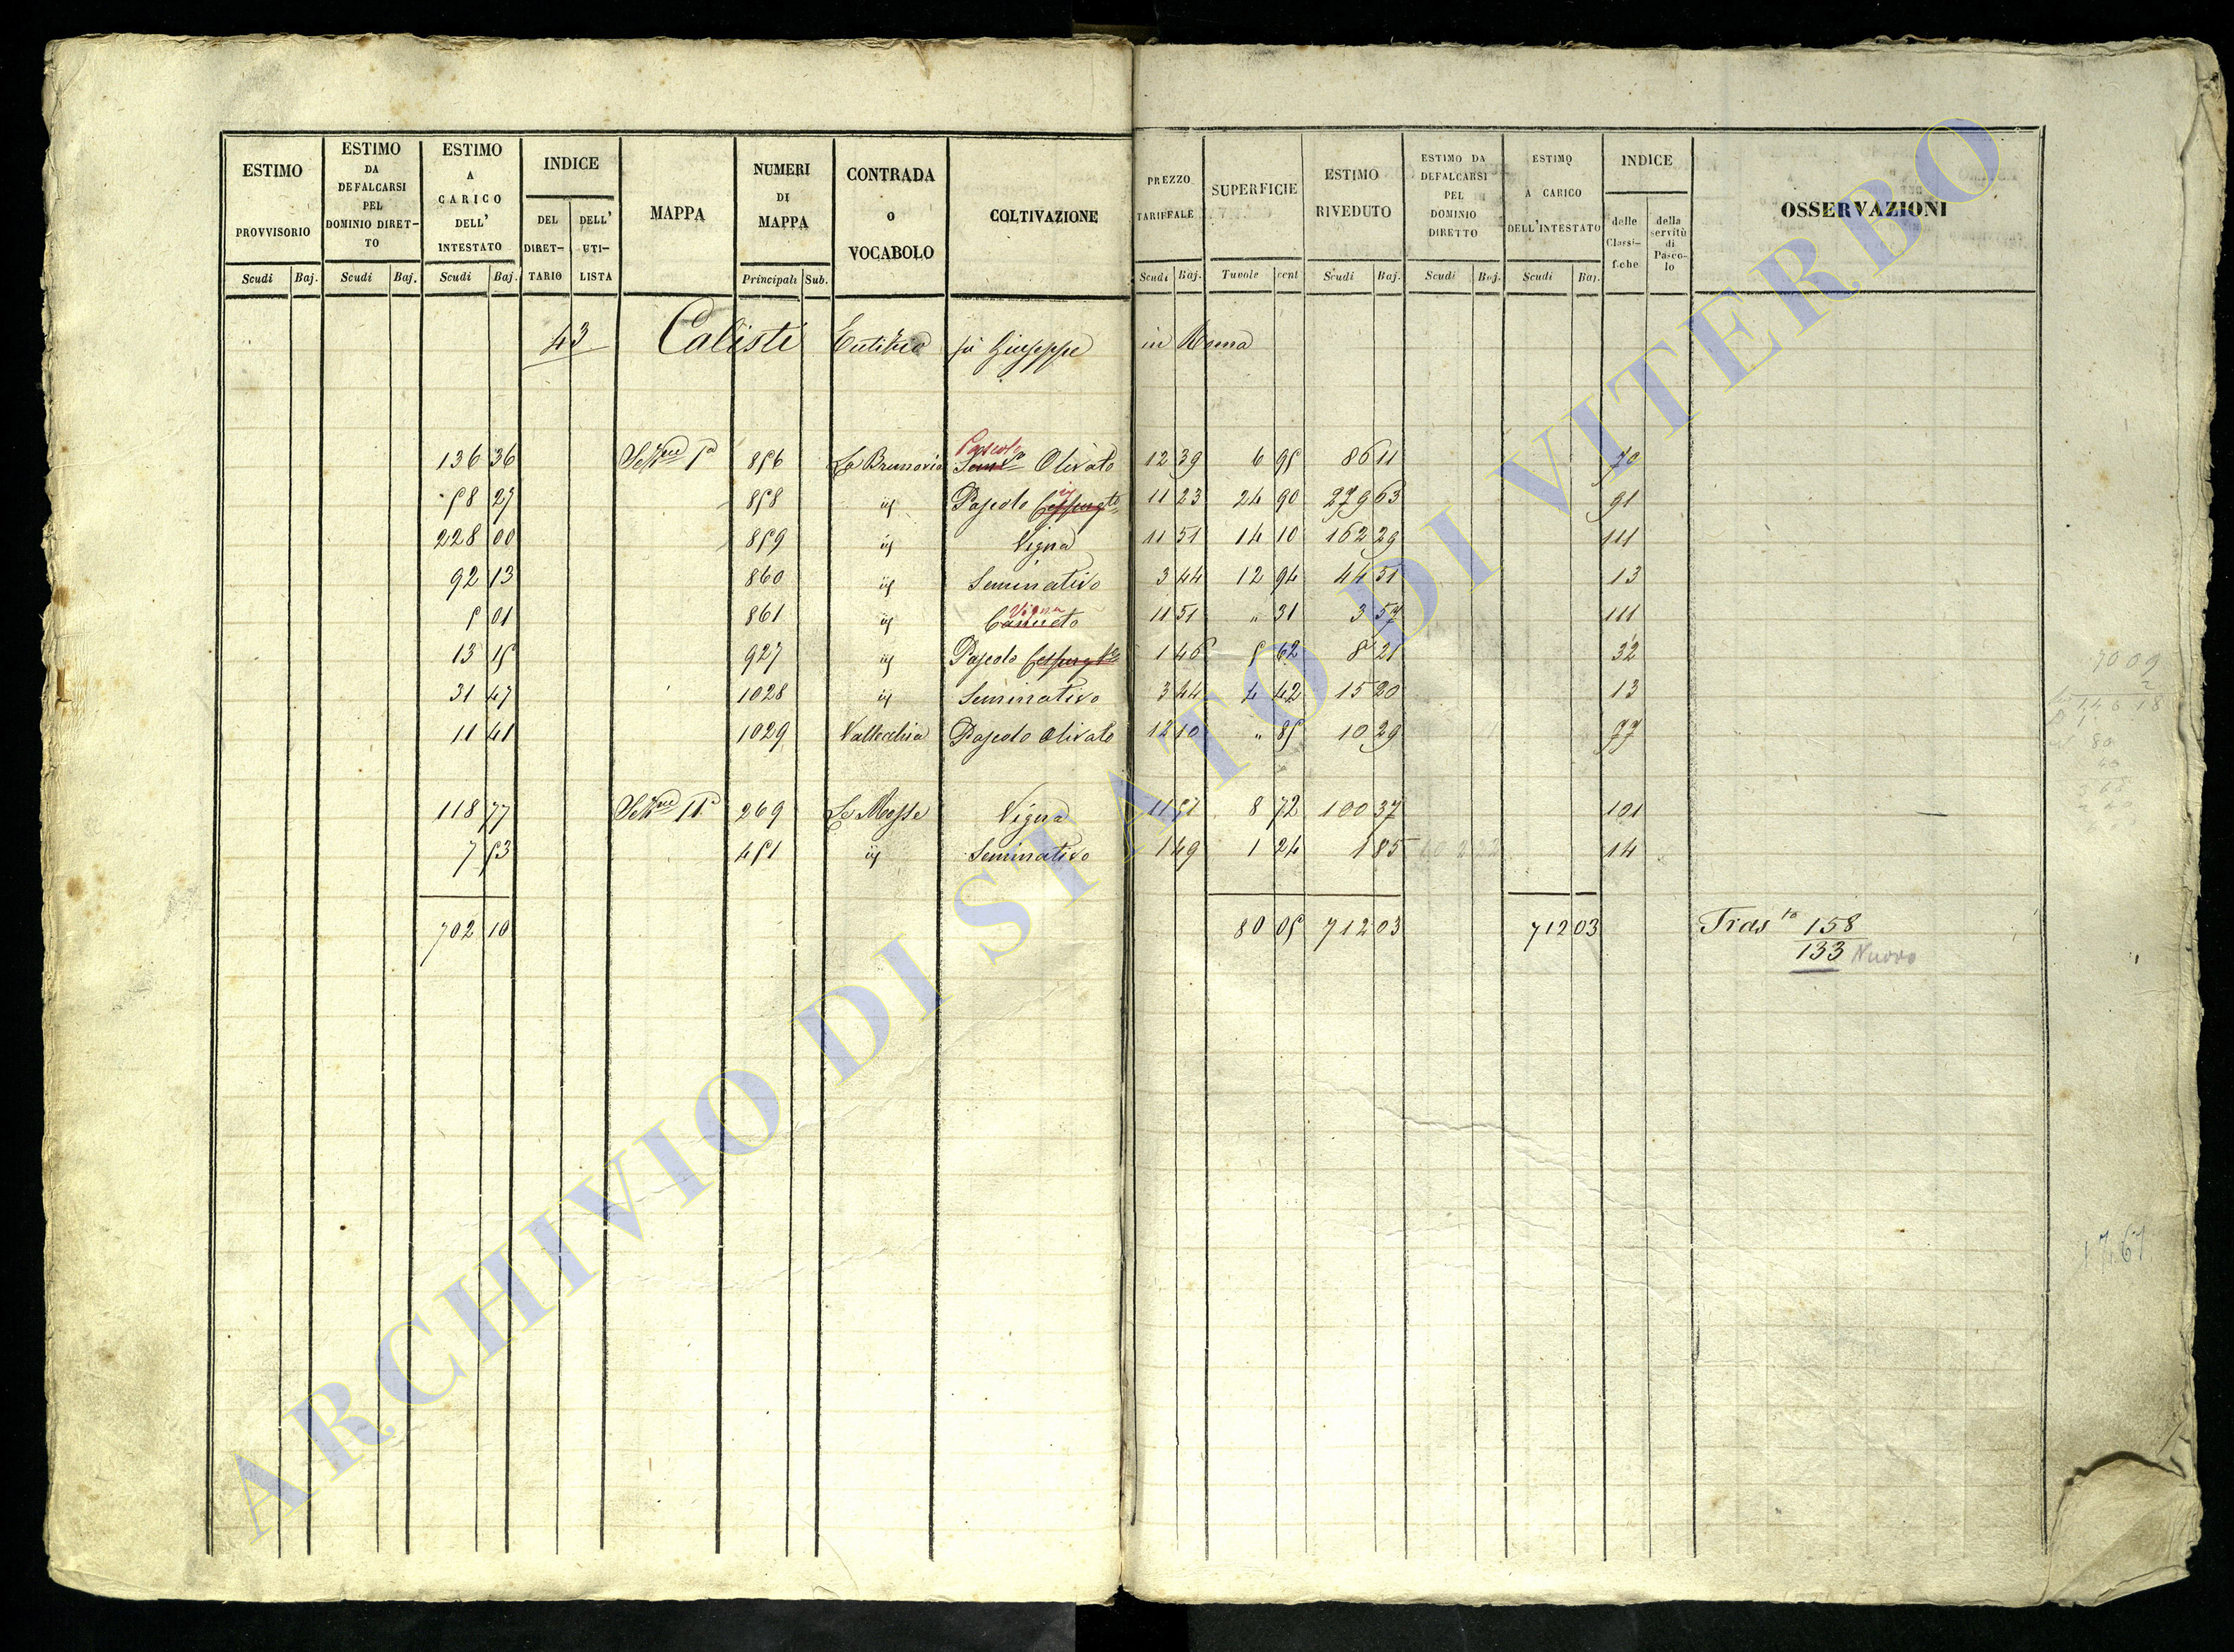 ESTIMO PROVVISORIO | ESTIMO DA DEFALCARSI PEL DOMINIO DIRET-TO | ESTIMO A CARICO DELL' INTESTATO | INDICE | MAPPA | NUMERI DI MAPPA | CONTRADA O VOCABOLO | COLTIVAZIONE | PREZZO TARIFFALE | SUPERFICIE | ESTIMO RIVEDUTO | ESTIMO DA DEFALCARSI PEL DOMINIO DIRETTO | ESTIMO A CARICO DELL'INTESTATO | INDICE | OSSERVAZIONI
DEL DIRET-TARIO | DELL' UTI-LISTA | delle Classi-fiche | della servitù di Pasco-lo
Scudi | Baj. | Scudi | Baj. | Scudi | Baj. | Principali | Sub. | Scudi | Baj. | Tavole | cent | Scudi | Baj. | Scudi | Baj. | Scudi | Baj.
43 Calisti fù Giuseppe in Roma
136 36 | Sett.ne I.a | 856 | Pascolo Olivato | 12 39 | 6 95 | 86 11 | 70
58 27 | 858 | id | Pascolo | 11 23 | 24 90 | 279 63 | 91
228 00 | 859 | id | Vigna | 11 51 | 14 10 | 162 29 | 111
92 13 | 860 | id | Seminativo | 3 44 | 12 94 | 44 51 | 13
5 01 | 861 | id | Vigna Canneto | 11 51 | " 31 | 3 57 | 111
13 15 | 927 | id | Pascolo | 1 46 | 5 62 | 8 21 | 32
31 47 | 1028 | id | Seminativo | 3 44 | 4 42 | 15 20 | 13
11 41 | 1029 | Vallecchia | Pascolo Olivato | 12 10 | " 85 | 10 29 | 77
118 77 | Sett.ne II.a | 269 | Le Mosse | Vigna | 11 51 | 8 72 | 100 37 | 101
7 53 | 451 | id | Seminativo | 1 49 | 1 24 | 1 85 | 14
702 10 | 80 05 | 712 03 | 712 03 | Tras.to 158
133 Nuovo
7009
1767
ARCHIVIO DI STATO DI VITERBO